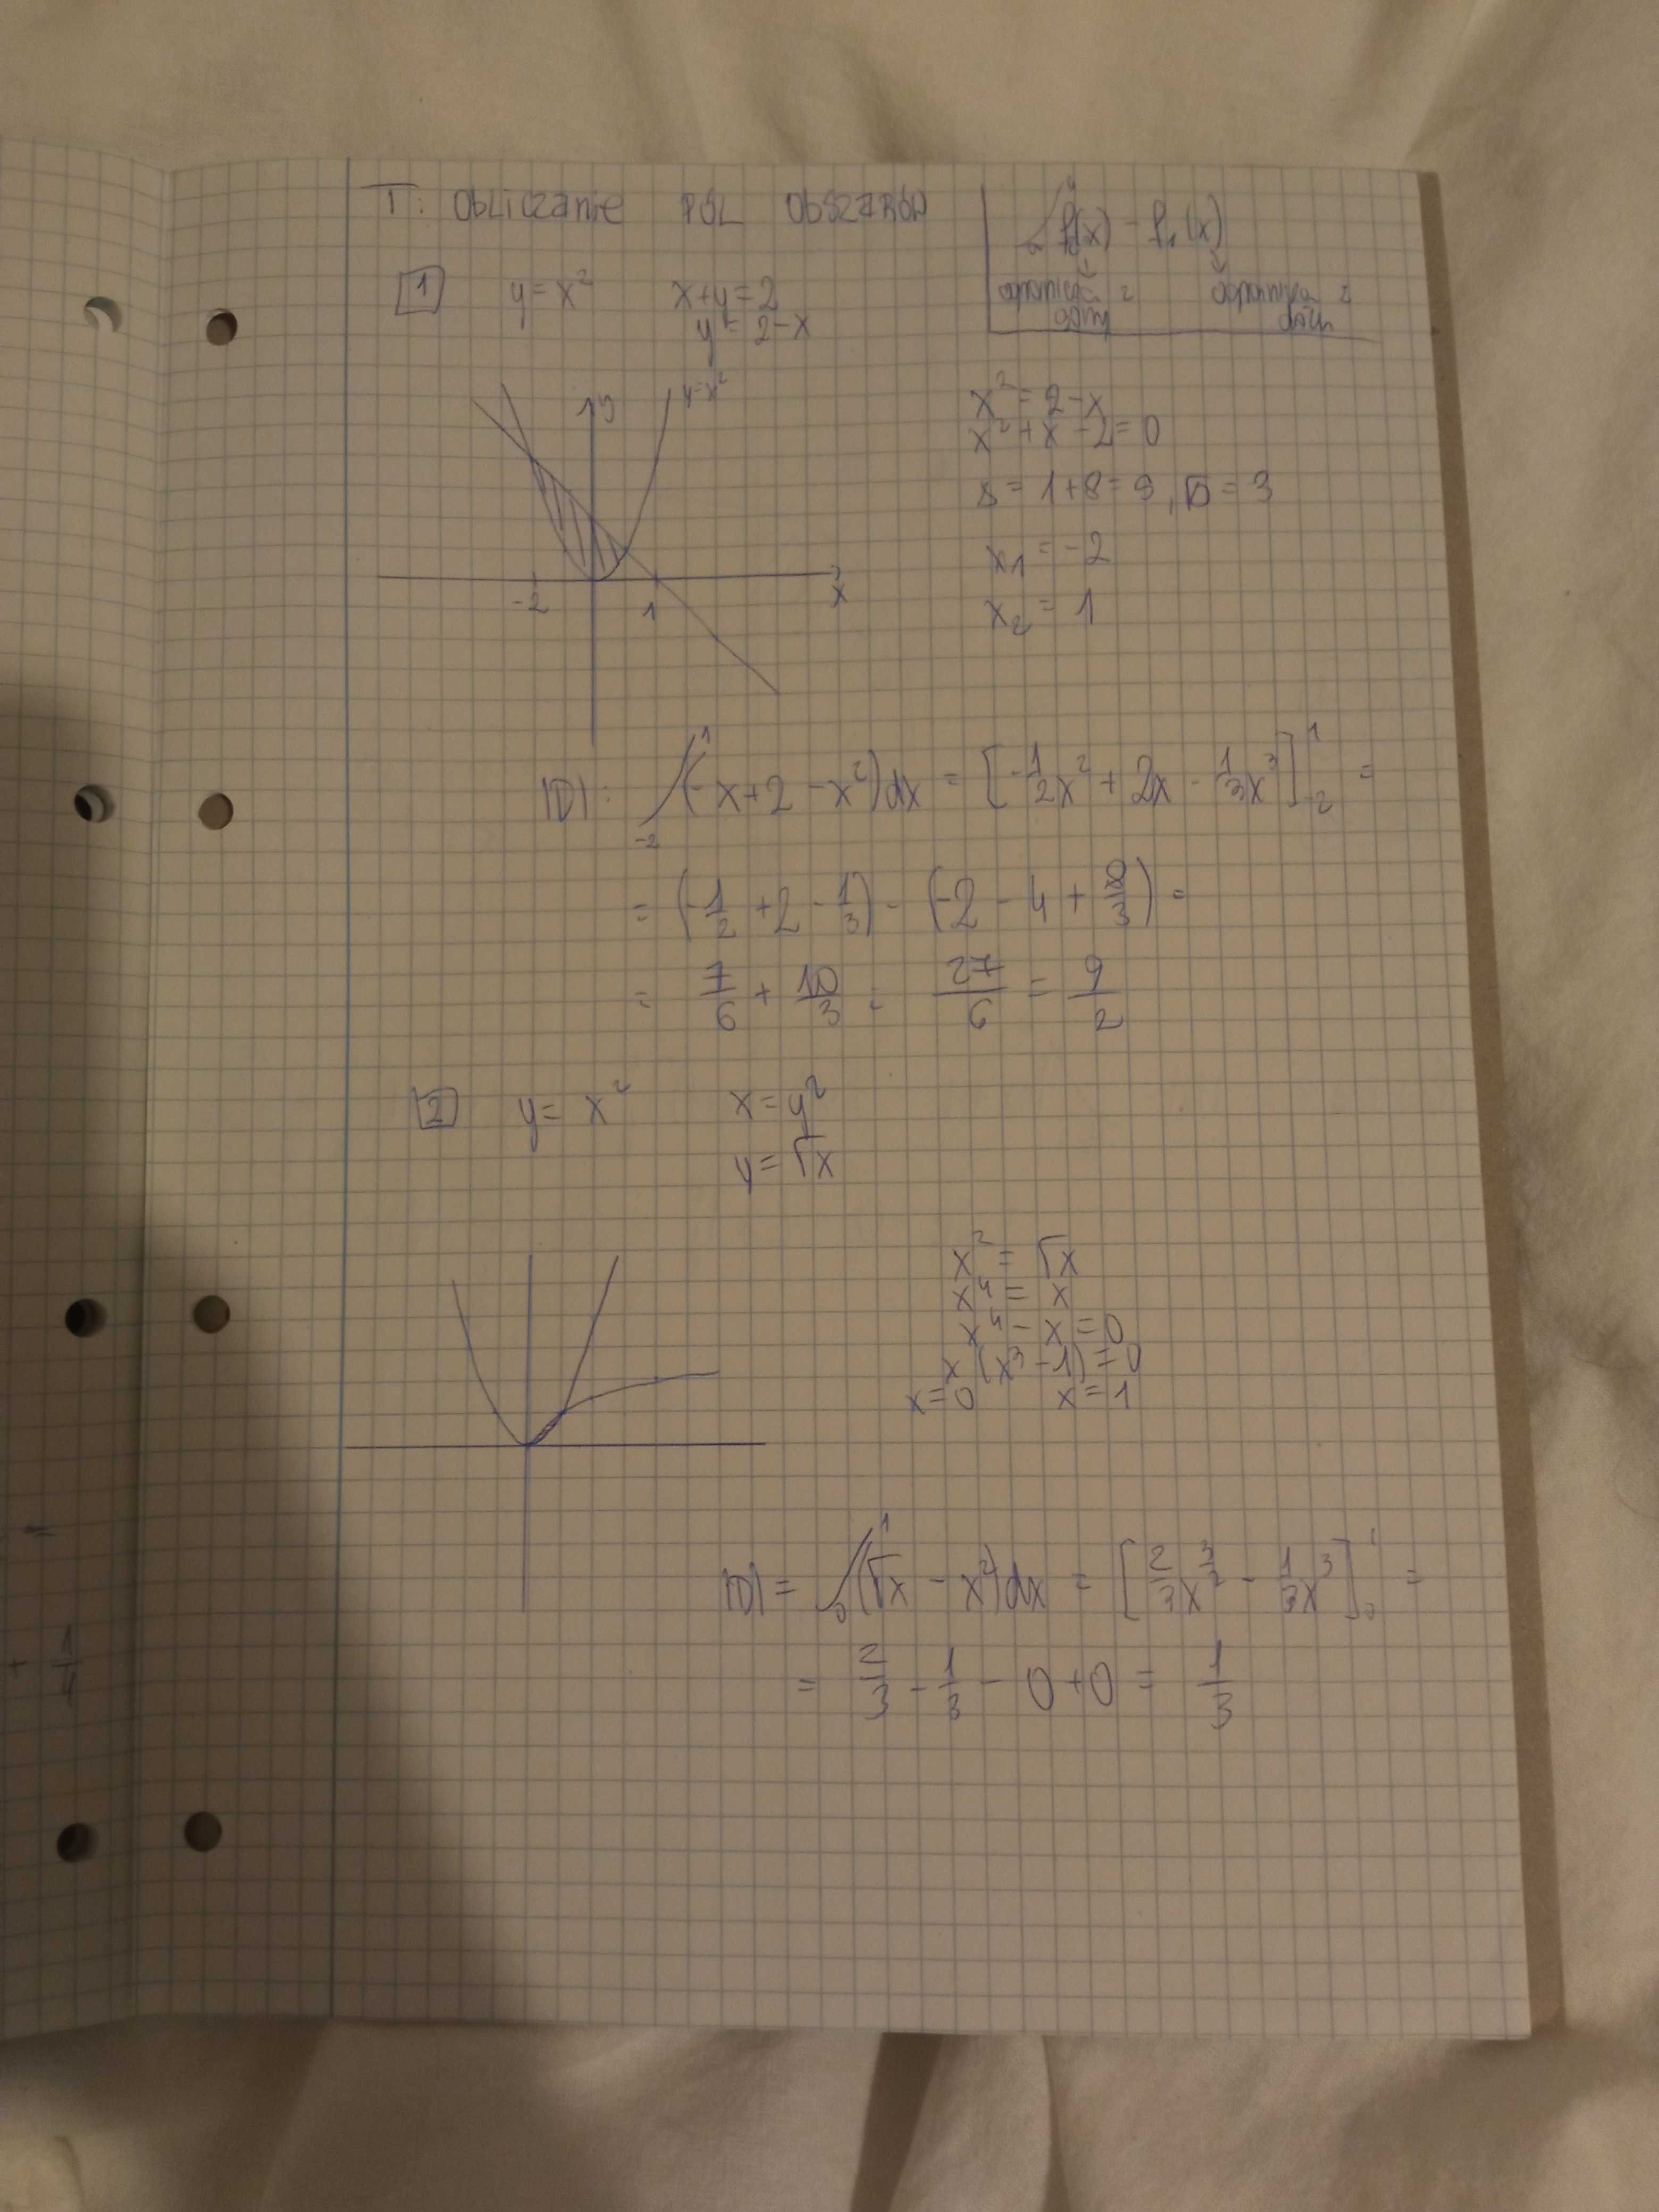 T: Obliczanie PÓL ObSZARÓW
∫ f₂(x) - f₁(x)
ogranicza z góry ogranicza z dołu
1 y = x² x+y=2
y = 2-x
y y=x²
-2 1 x
x² = 2-x
x² + x - 2 = 0
Δ = 1+8 = 9, √Δ = 3
x₁ = -2
x₂ = 1
|D|: ∫₋₂¹ (-x+2-x²)dx = [-1/2x² + 2x - 1/3x³]₋₂¹ =
= (-1/2 + 2 - 1/3) - (-2 - 4 + 8/3) =
= 7/6 + 10/3 = 27/6 = 9/2
2 y = x² x = y²
y = √x
x² = √x
x⁴ = x
x⁴ - x = 0
x (x³-1) = 0
x=0 x=1
|D| = ∫₀¹ (√x - x²)dx = [2/3x^3/2 - 1/3x³]₀¹ =
= 2/3 - 1/3 - 0 + 0 = 1/3
=
+ 1/4